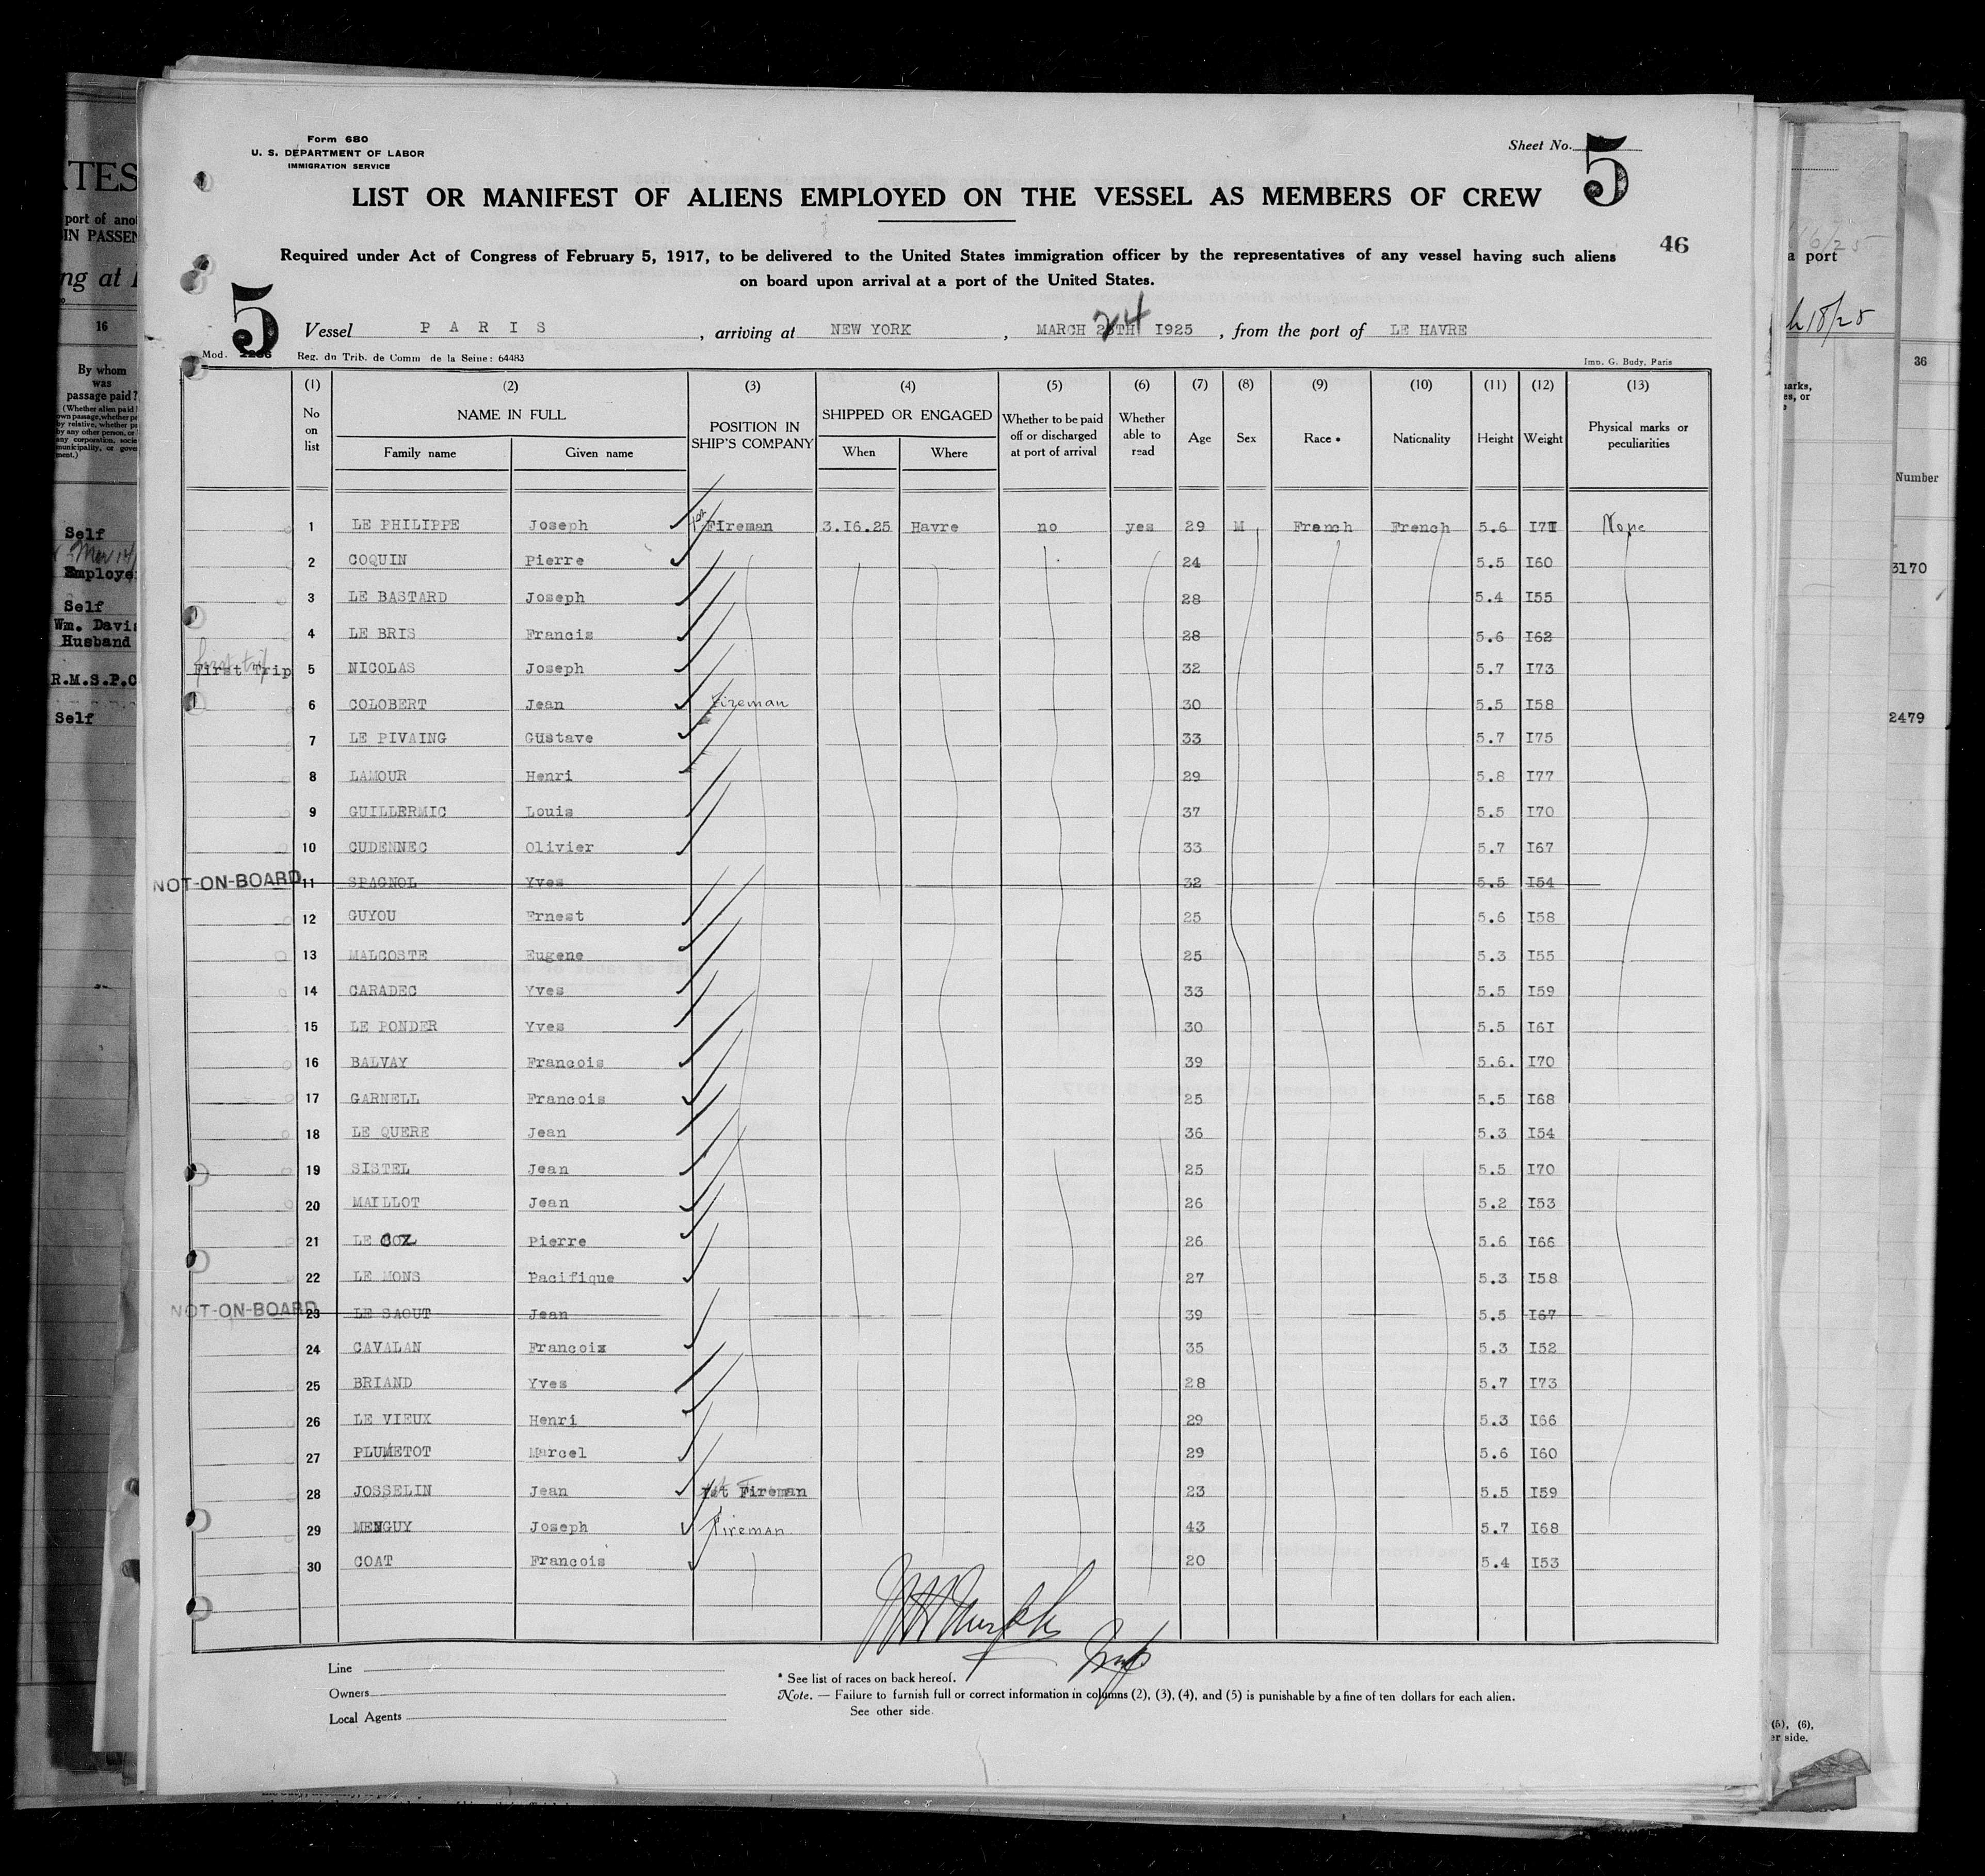 Form 680
U. S. DEPARTMENT OF LABOR
IMMIGRATION SERVICE
Sheet No. 5
LIST OR MANIFEST OF ALIENS EMPLOYED ON THE VESSEL AS MEMBERS OF CREW
46
Required under Act of Congress of February 5, 1917, to be delivered to the United States immigration officer by the representatives of any vessel having such aliens
on board upon arrival at a port of the United States.
5
Vessel PARIS, arriving at NEW YORK, MARCH 24TH I925, from the port of LE HAVRE
Mod. Reg. du Trib. de Comm de la Seine: 64483 Imp. G. Budy, Paris
(1) (2) (3) (4) (5) (6) (7) (8) (9) (10) (11) (12) (13)
No on list NAME IN FULL Family name Given name POSITION IN SHIP'S COMPANY SHIPPED OR ENGAGED When Where Whether to be paid off or discharged at port of arrival Whether able to read Age Sex Race * Nationality Height Weight Physical marks or peculiarities
1 LE PHILIPPE Joseph Fireman 3.I6.25 Havre no yes 29 M French French 5.6 I7I None
2 COQUIN Pierre 24 5.5 I60
3 LE BASTARD Joseph 28 5.4 I55
4 LE BRIS Francis 28 5.6 I62
First Trip 5 NICOLAS Joseph 32 5.7 I73
6 COLOBERT Jean Fireman 30 5.5 I58
7 LE PIVAING Gustave 33 5.7 I75
8 LAMOUR Henri 29 5.8 I77
9 GUILLERMIC Louis 37 5.5 I70
10 CUDENNEC Olivier 33 5.7 I67
NOT-ON-BOARD 11 SPAGNOL Yves 32 5.5 I54
12 GUYOU Ernest 25 5.6 I58
13 MALCOSTE Eugene 25 5.3 I55
14 CARADEC Yves 33 5.5 I59
15 LE PONDER Yves 30 5.5 I6I
16 BALVAY Francois 39 5.6. I70
17 GARNELL Francois 25 5.5 I68
18 LE QUERE Jean 36 5.3 I54
19 SISTEL Jean 25 5.5 I70
20 MAILLOT Jean 26 5.2 I53
21 LE COZ Pierre 26 5.6 I66
22 LE MONS Pacifique 27 5.3 I58
NOT-ON-BOARD 23 LE SAOUT Jean 39 5.5 I67
24 CAVALAN Francois 35 5.3 I52
25 BRIAND Yves 28 5.7 I73
26 LE VIEUX Henri 29 5.3 I66
27 PLUMETOT Marcel 29 5.6 I60
28 JOSSELIN Jean 1st Fireman 23 5.5 I59
29 MENGUY Joseph Fireman 43 5.7 I68
30 COAT Francois 20 5.4 I53
Line
Owners
Local Agents
* See list of races on back hereof.
Note. — Failure to furnish full or correct information in columns (2), (3), (4), and (5) is punishable by a fine of ten dollars for each alien.
See other side.
16
By whom
was
passage paid?
Self
Self
Wm. Davis
Husband
R.M.S.P.C
Self
a port
36
Number
3170
2479
(5), (6),
er side.